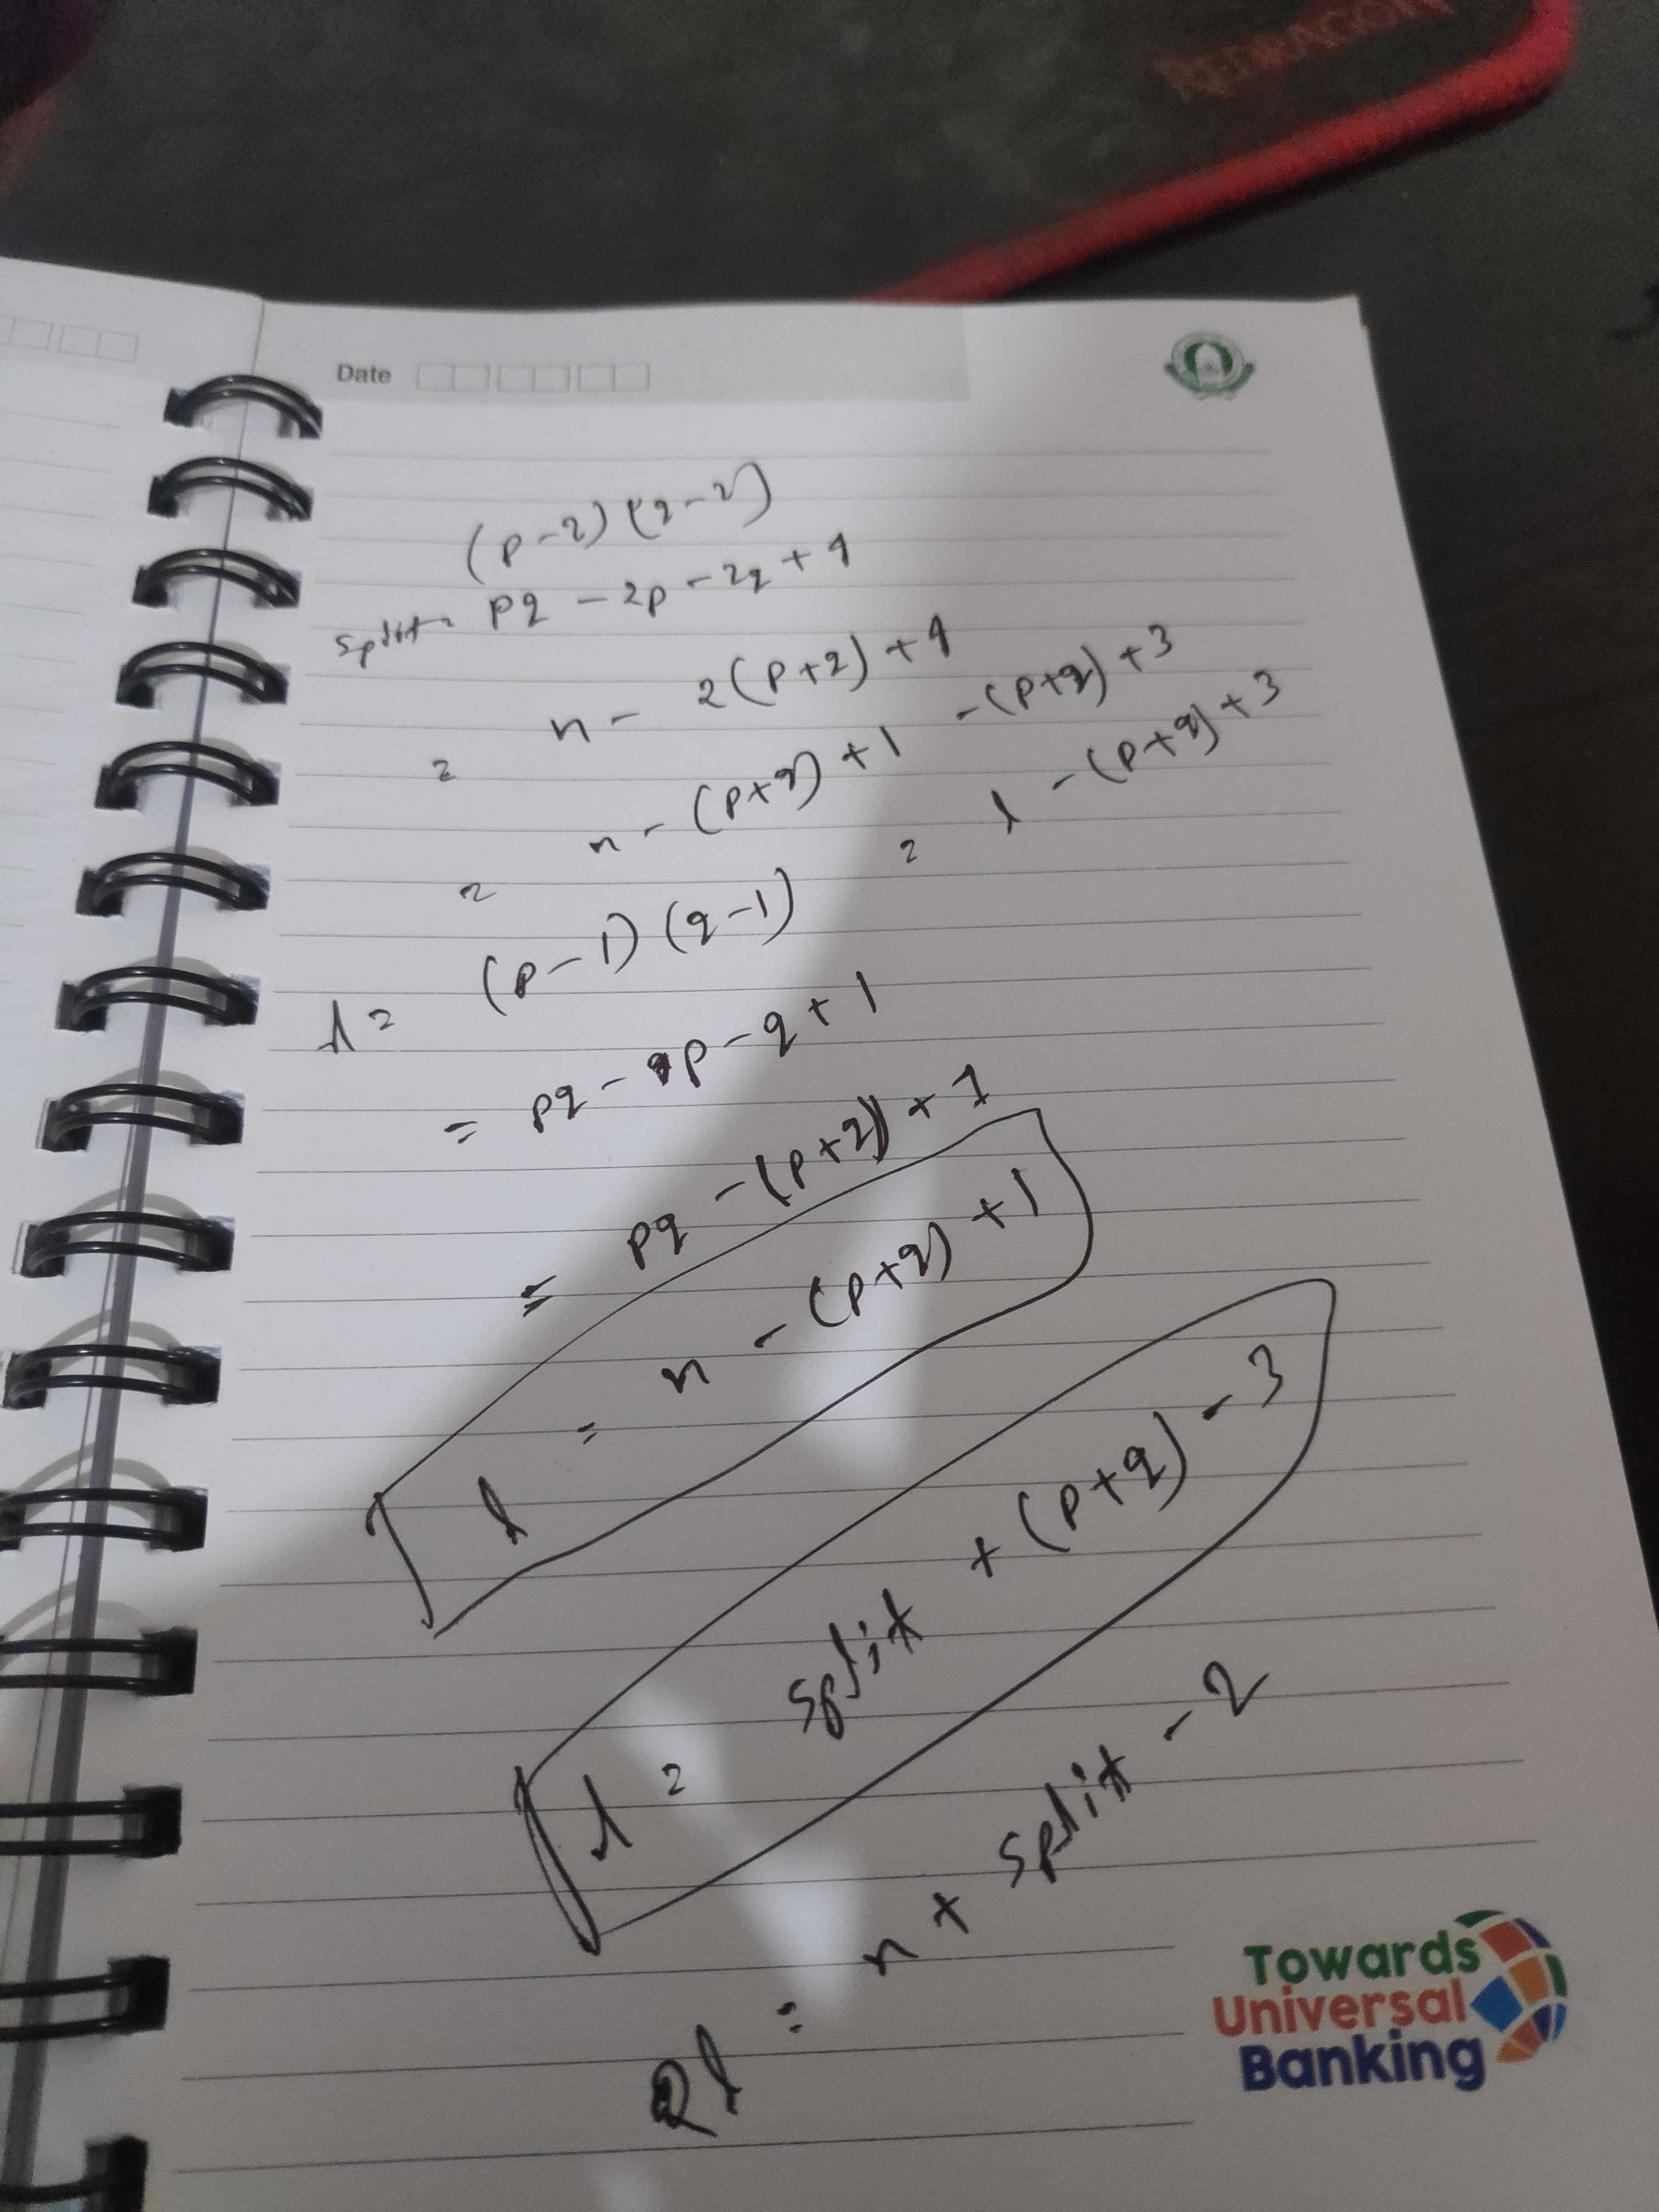 REDRAGON
Date
(p-2)(q-2)
split = pq - 2p - 2q + 4
= n - 2(p+q) + 4
= n - (p+q) + 1 - (p+q) + 3
= λ - (p+q) + 3
λ = (p-1)(q-1)
= pq - p - q + 1
= pq - (p+q) + 1
λ = n - (p+q) + 1
λ = split + (p+q) - 3
2λ = n + split - 2
Towards
Universal
Banking